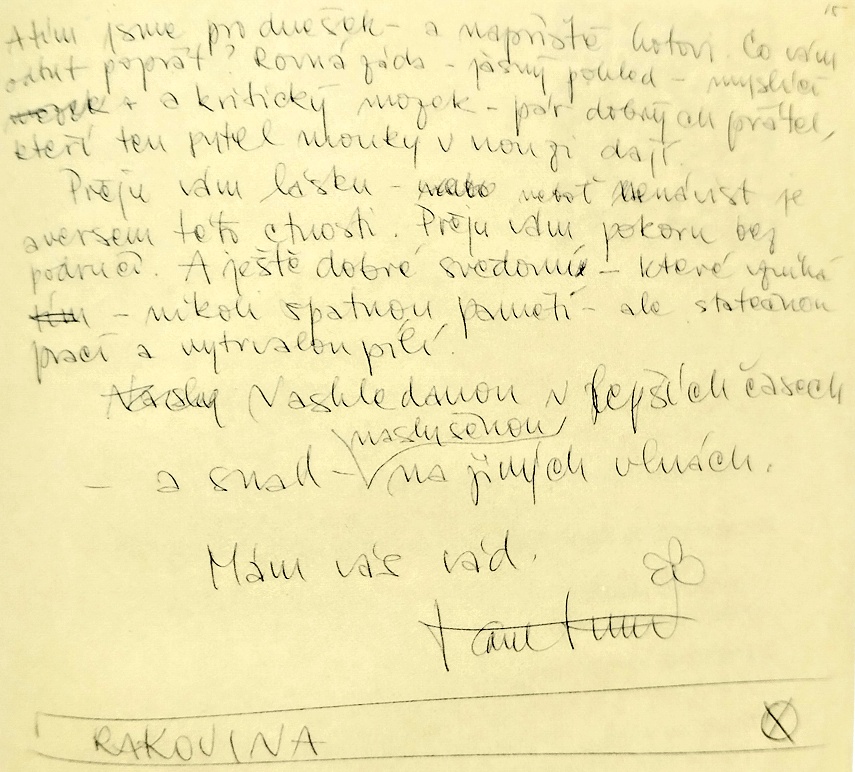 A tím jsme pro dnešek - a napříště hotovi. Co vám
odtud popřát? Rovná záda - jasný pohled - myslící
mozek + a kritický mozek - pár dobrých přátel,
kteří ten pytel mouky v nouzi dají.
Přeju vám lásku - nebo neboť nenávist je
aversem této ctnosti. Přeju vám pokoru bez
područí. A ještě dobré svědomí - které vzniká
tím - nikoli špatnou pamětí - ale statečnou
prací a vytrvalou pílí.
Nashledanou v lepších časech
naslyšenou
- a snad - na jiných vlnách.
Mám vás rád.
RAKOVINA